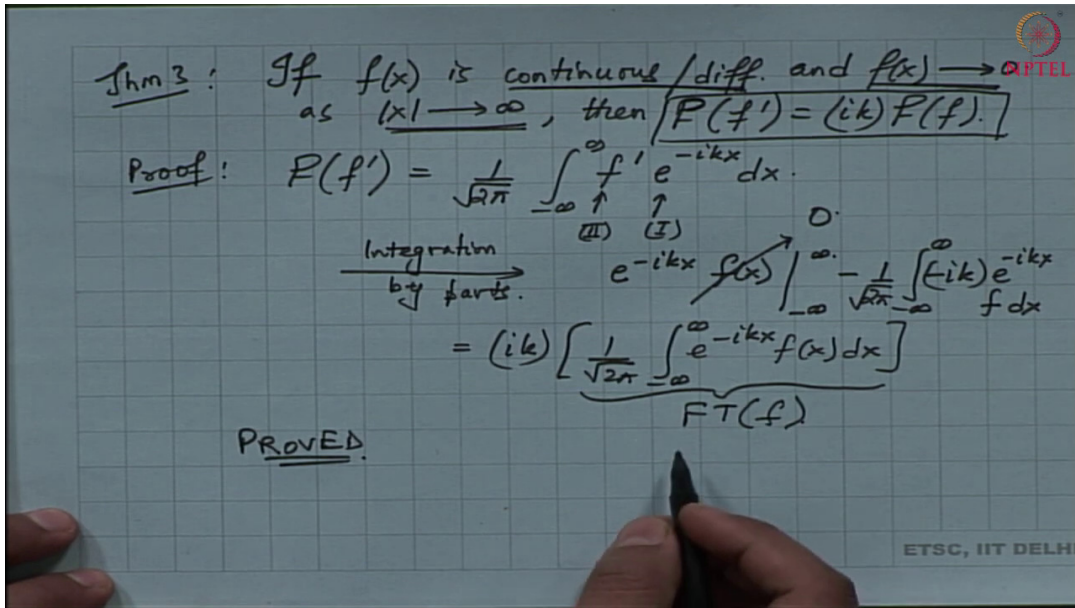 Thm 3 : If f(x) is continuous/diff. and f(x) → 0
NPTEL
as |x| → ∞, then F(f') = (ik) F(f).
Proof : F(f') = 1/√2π ∫_{-∞}^{∞} f' e^{-ikx} dx.
↑ (II) ↑ (I)
Integration by parts. → e^{-ikx} f(x) |_{-∞}^{∞} → 0 - 1/√2π ∫_{-∞}^{∞} (-ik) e^{-ikx} f dx
= (ik) [ 1/√2π ∫_{-∞}^{∞} e^{-ikx} f(x) dx ]
FT(f)
PROVED.
ETSC, IIT DELH